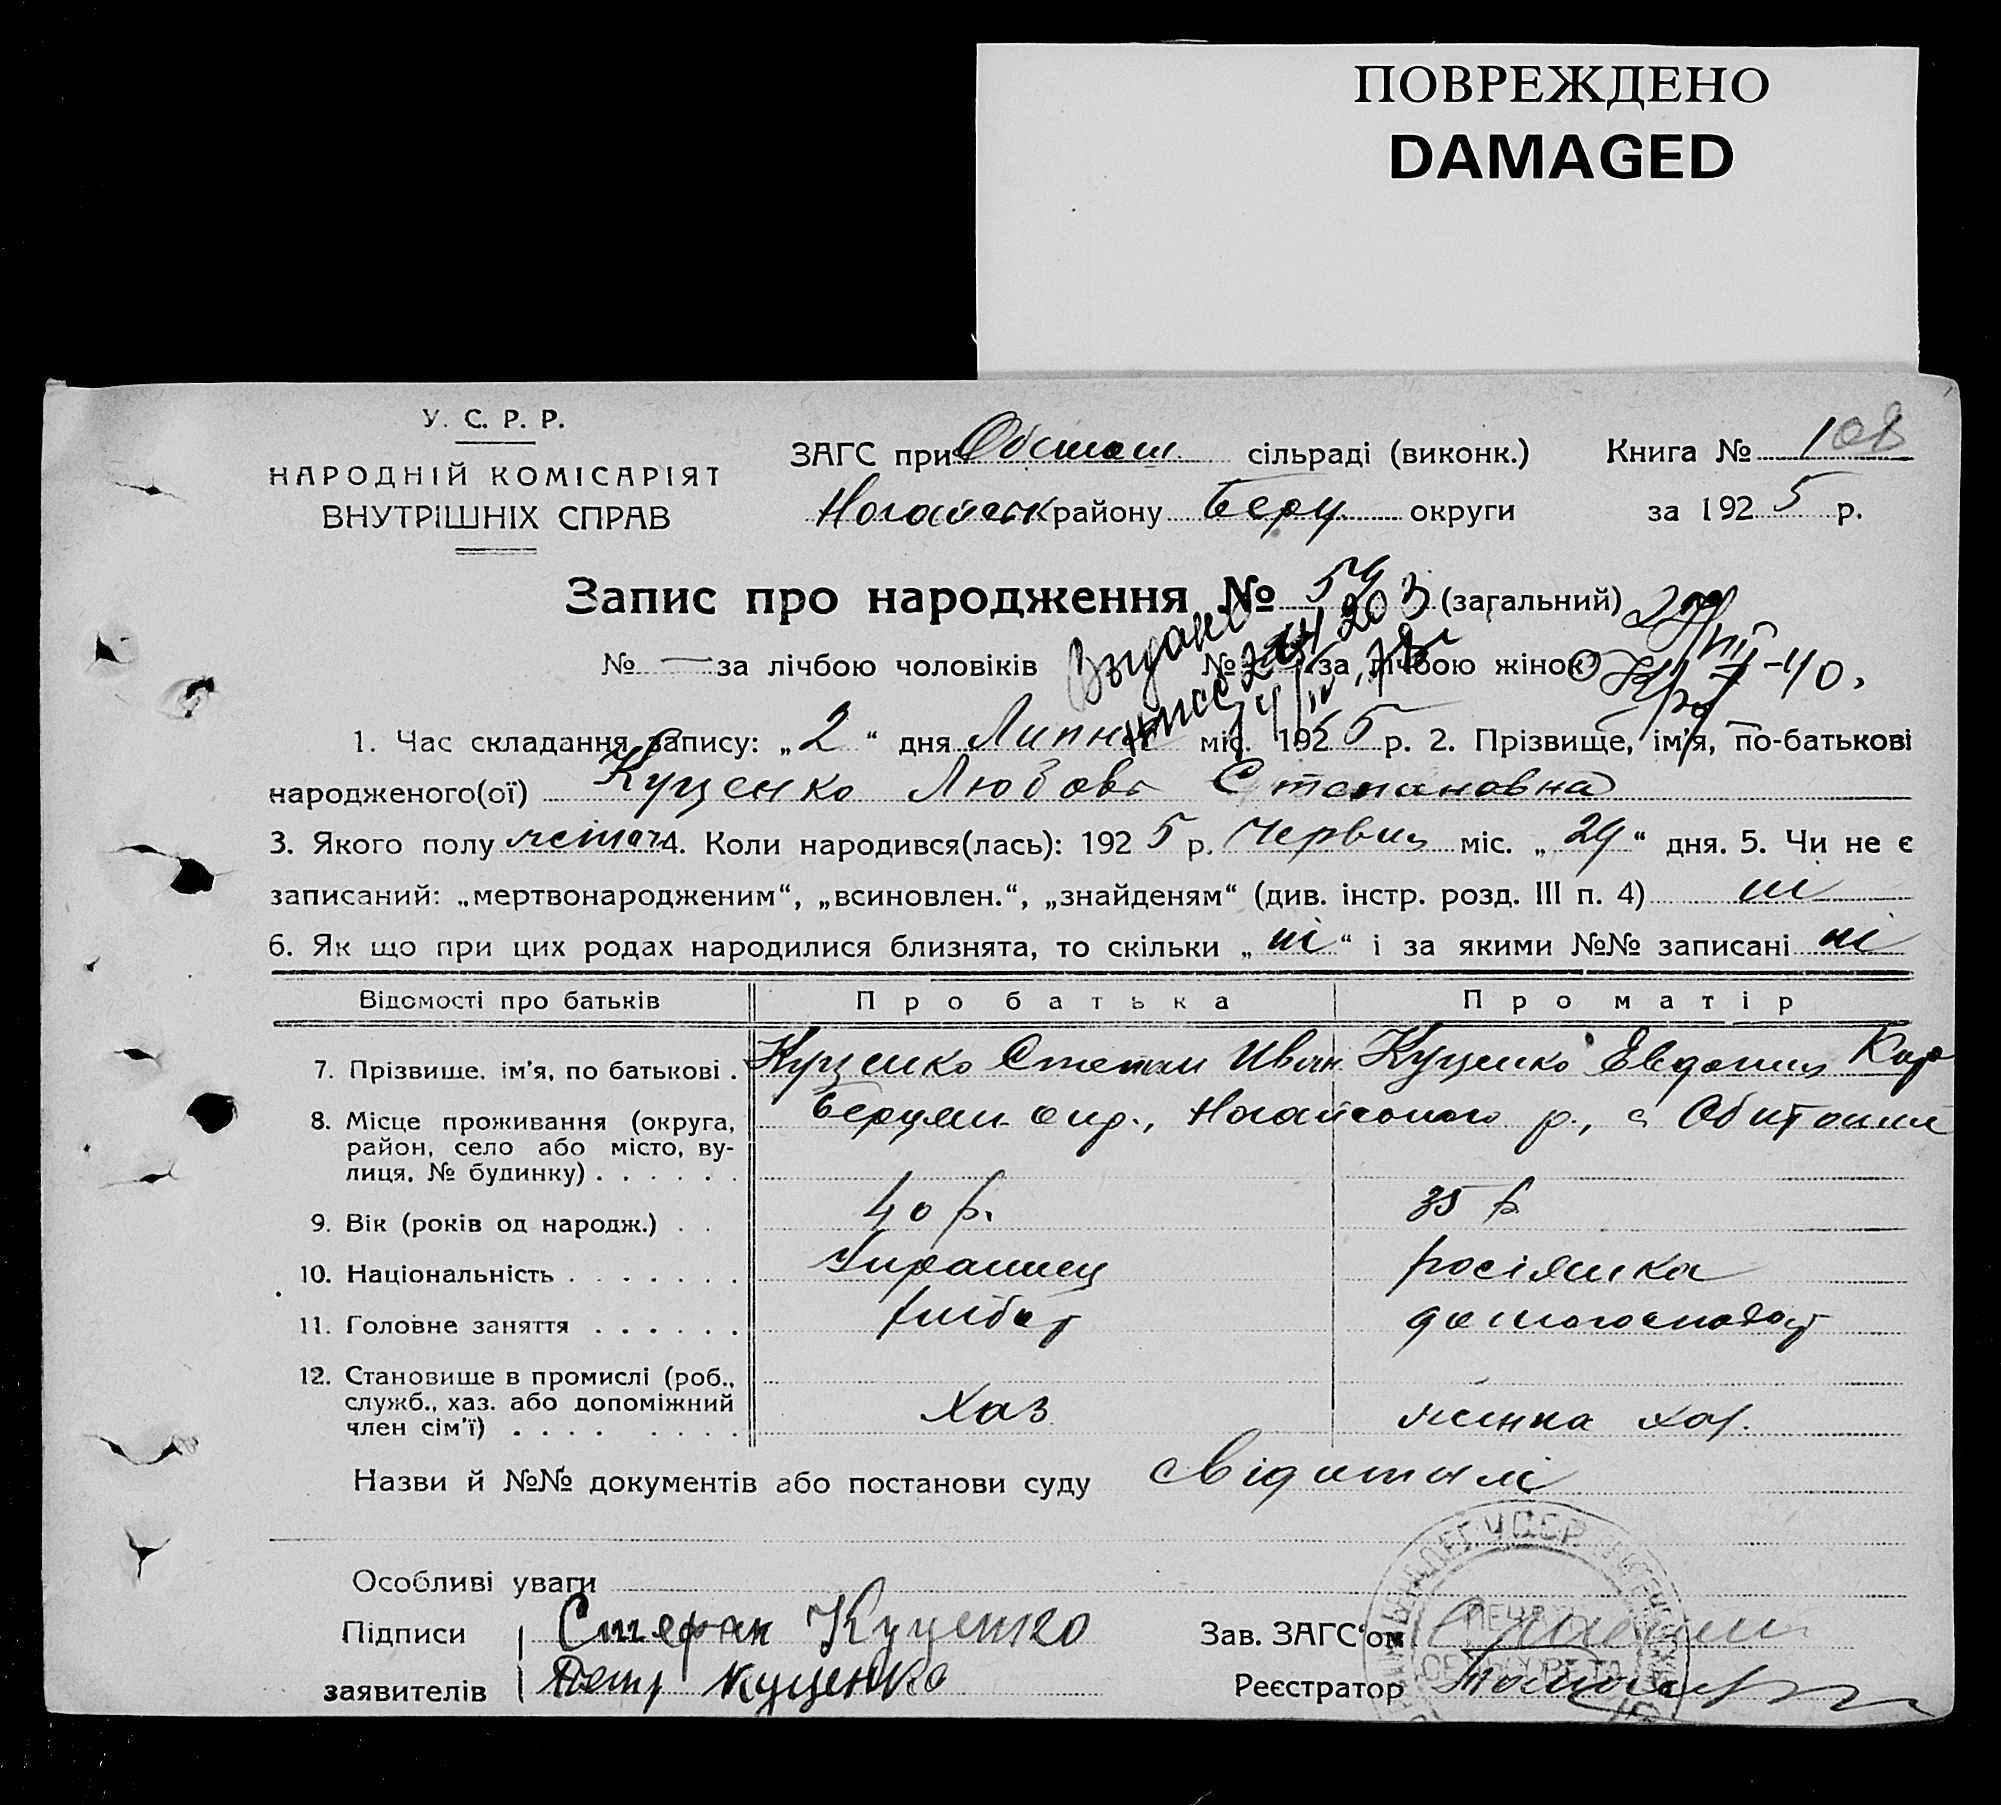 ПОВРЕЖДЕНО
DAMAGED
У. С. Р. Р.
НАРОДНІЙ КОМІСАРІЯТ
ВНУТРІШНІХ СПРАВ
ЗАГС при сільраді (виконк.) Книга № 108
Ногайськ району Берд. округи за 1925 р.
Запис про народження № 59 (загальний)
№ — за лічбою чоловіків № за лічбою жінок
1. Час складання запису: „2“ дня Липня міс. 1925 р. 2. Прізвище, ім’я, по-батькові
народженого(ої) Куценко Любовь Степановна
3. Якого полу жіноч 4. Коли народився(лась): 1925 р. Червня міс. „29“ дня. 5. Чи не є
записаний: „мертвонародженим“, „всиновлен.“, „знайденям“ (див. інстр. розд. III п. 4) ні
6. Як що при цих родах народилися близнята, то скільки „ні“ і за якими №№ записані ні
Відомості про батьків Про батька Про матір
7. Прізвище, ім’я, по батькові . Куценко Степан Иван Куценко Евдокия Кар
8. Місце проживання (округа, район, село або місто, вулиця, № будинку) . . . . . . Бердян. окр., Ногайського р., с
9. Вік (років од народж.) . . 40 р. 35 р.
10. Національність . . . . . . . Українец росіянка
11. Головне заняття . . . . . . хлібор домогосподар
12. Становище в промислі (роб., служб., хаз. або допоміжний член сім’ї) . . . . . . . . Хаз жінка хаз.
Назви й №№ документів або постанови суду
Особливі уваги
Підписи Стефан Куценко Зав. ЗАГС‘ом
заявителів Петр Куценко Реєстратор